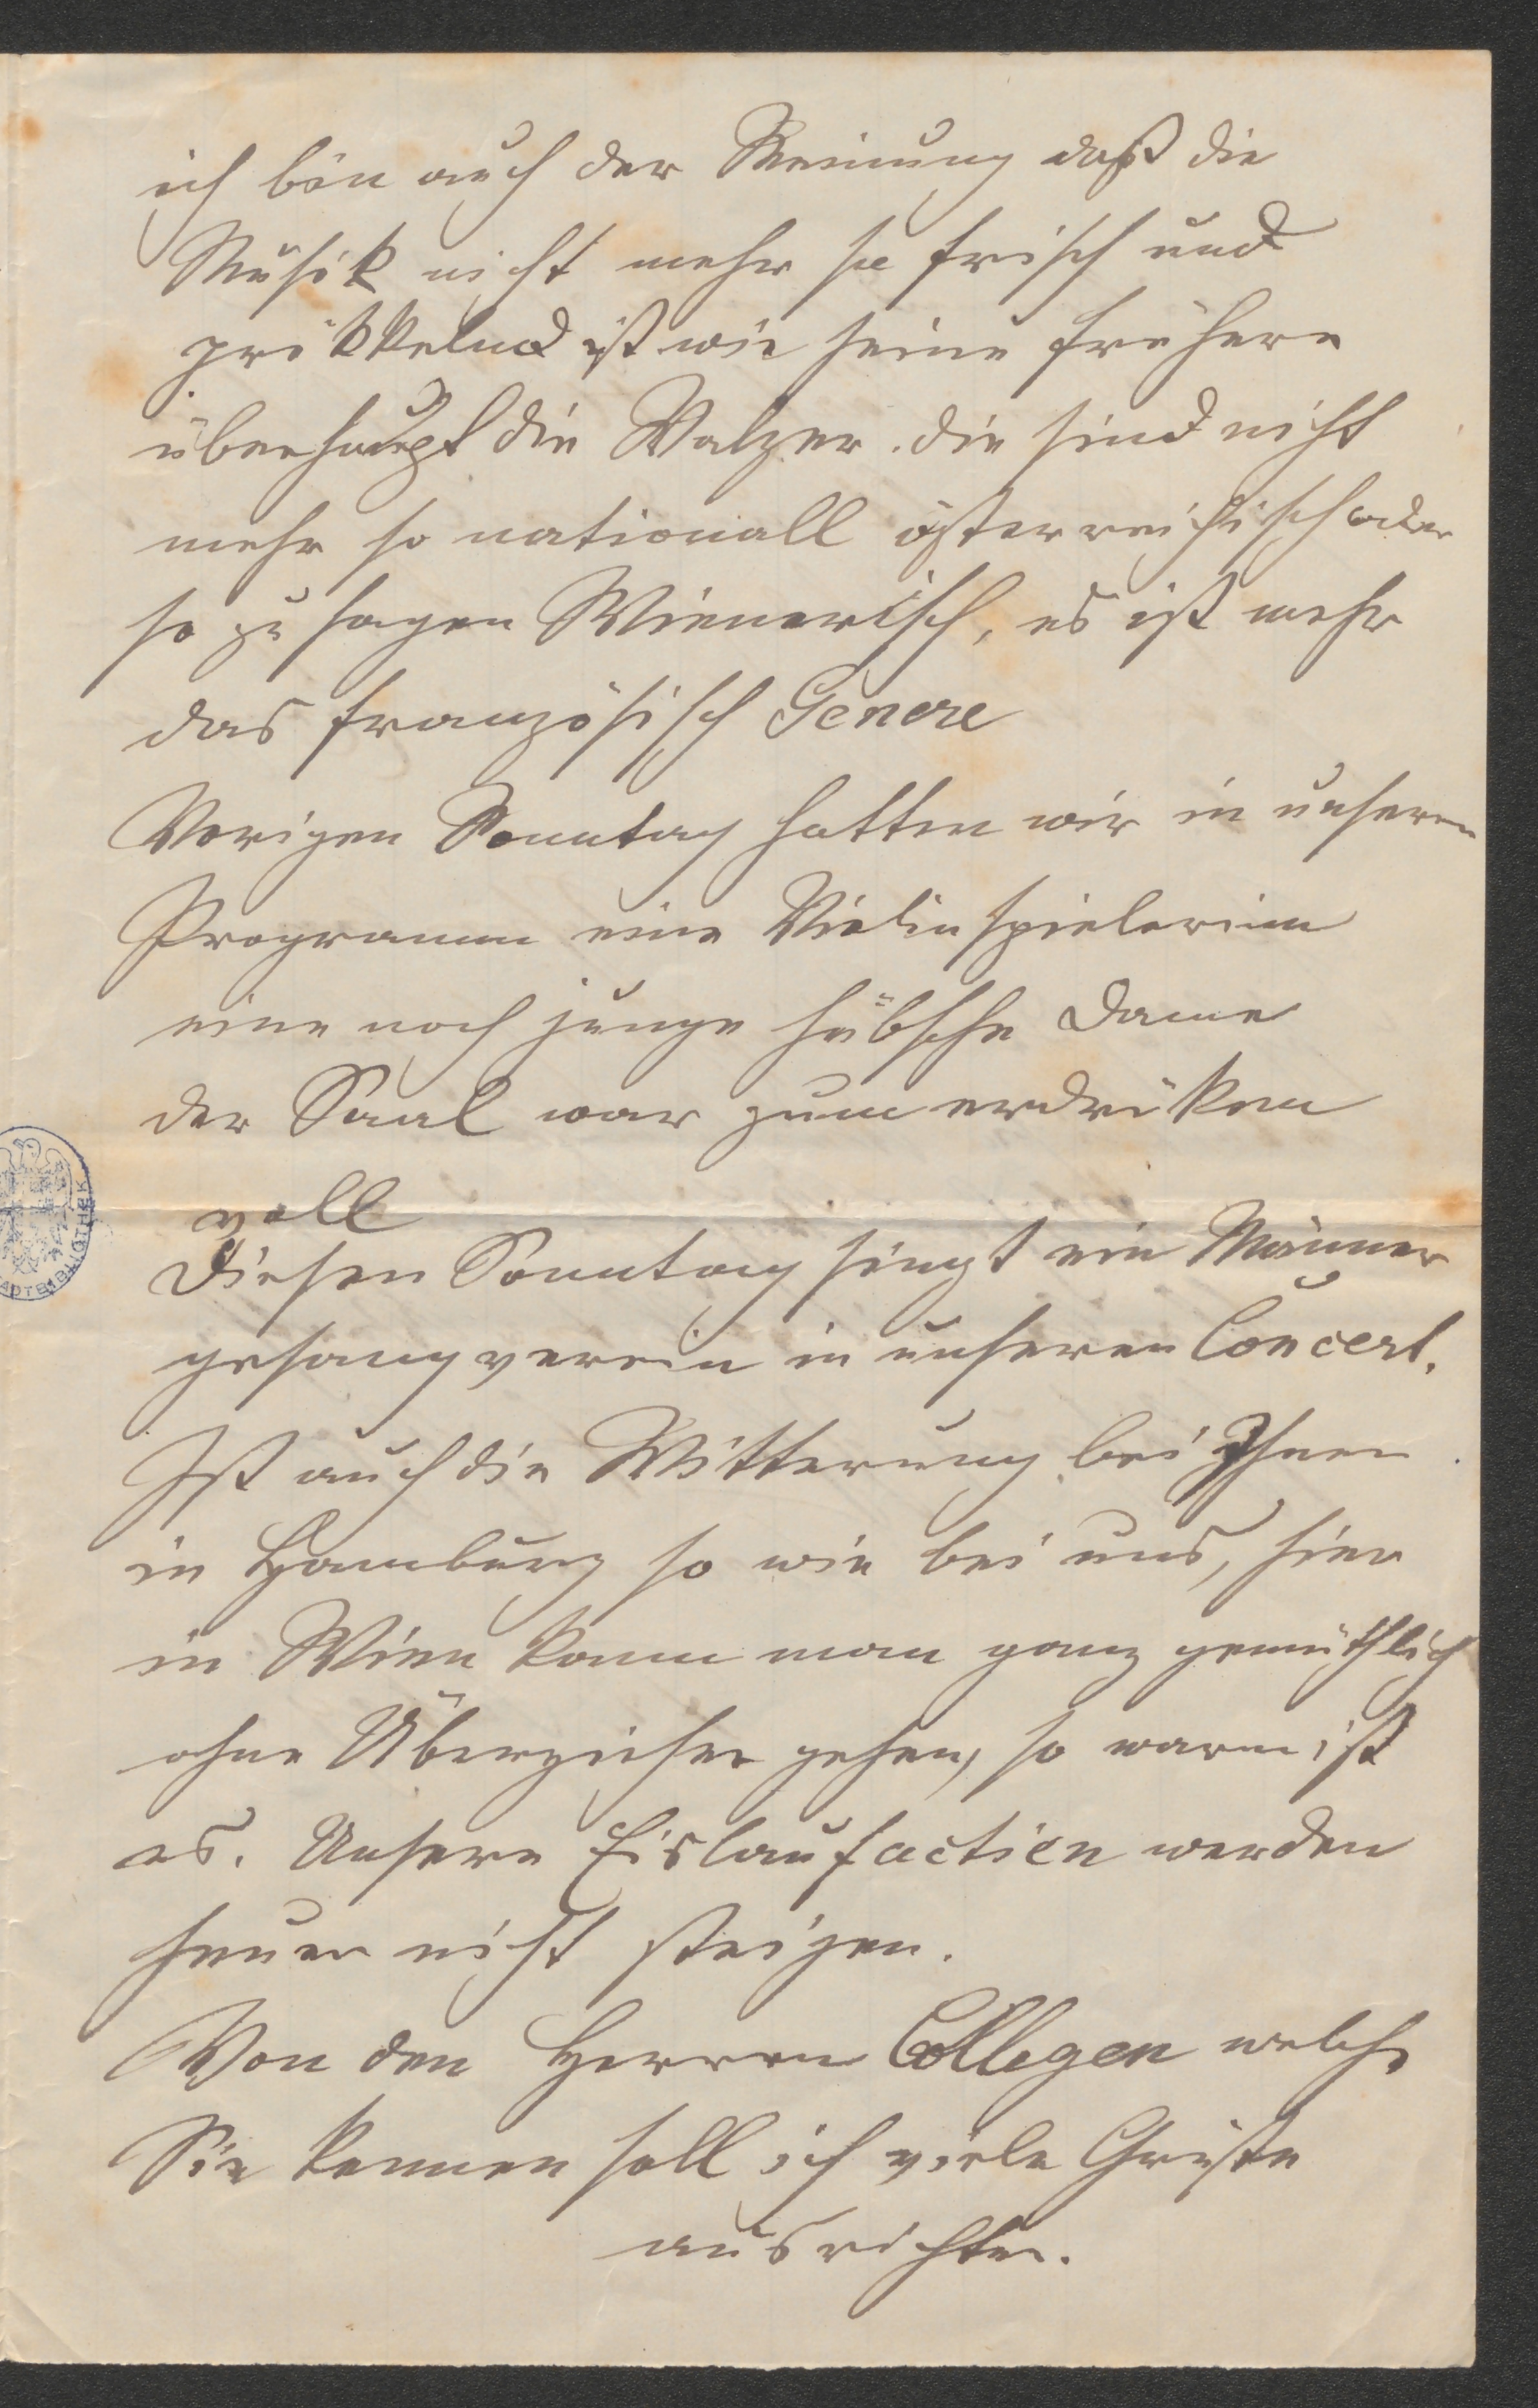 ich bin auch der Meinung daß die
Musik nicht mehr so frisch und
prikkelnd ist wie seine frühere
überhaupt die Walzer. die sind nicht
mehr so nationall österreichisch oder
so zu sagen Wienerisch, es ist mehr
das französisch Genere
Vorigen Sonntag hatten wir in unseren
Programm eine Violinspielerinn
eine noch junge hübsche Dame
der Saal war zum erdrüken
voll
Diesen Sonntag singt ein Männer
gesangverein in unseren Concert.
Ist auch die Witterung bei Ihnen
in Hamburg so wie bei uns, hier
in Wien kann man ganz gemüthlich
ohne Überzieher gehen, so warm ist
es. Unsere Eislaufactien werden
heuer nicht steigen.
Von den Herren Collegen welche
Sie kennen soll ich viele Grüße
ausrichten.